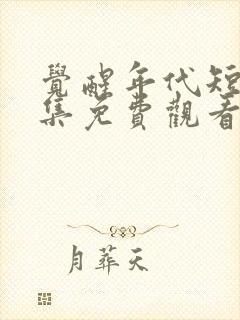 覺醒年代短
集免費觀看
月葬天